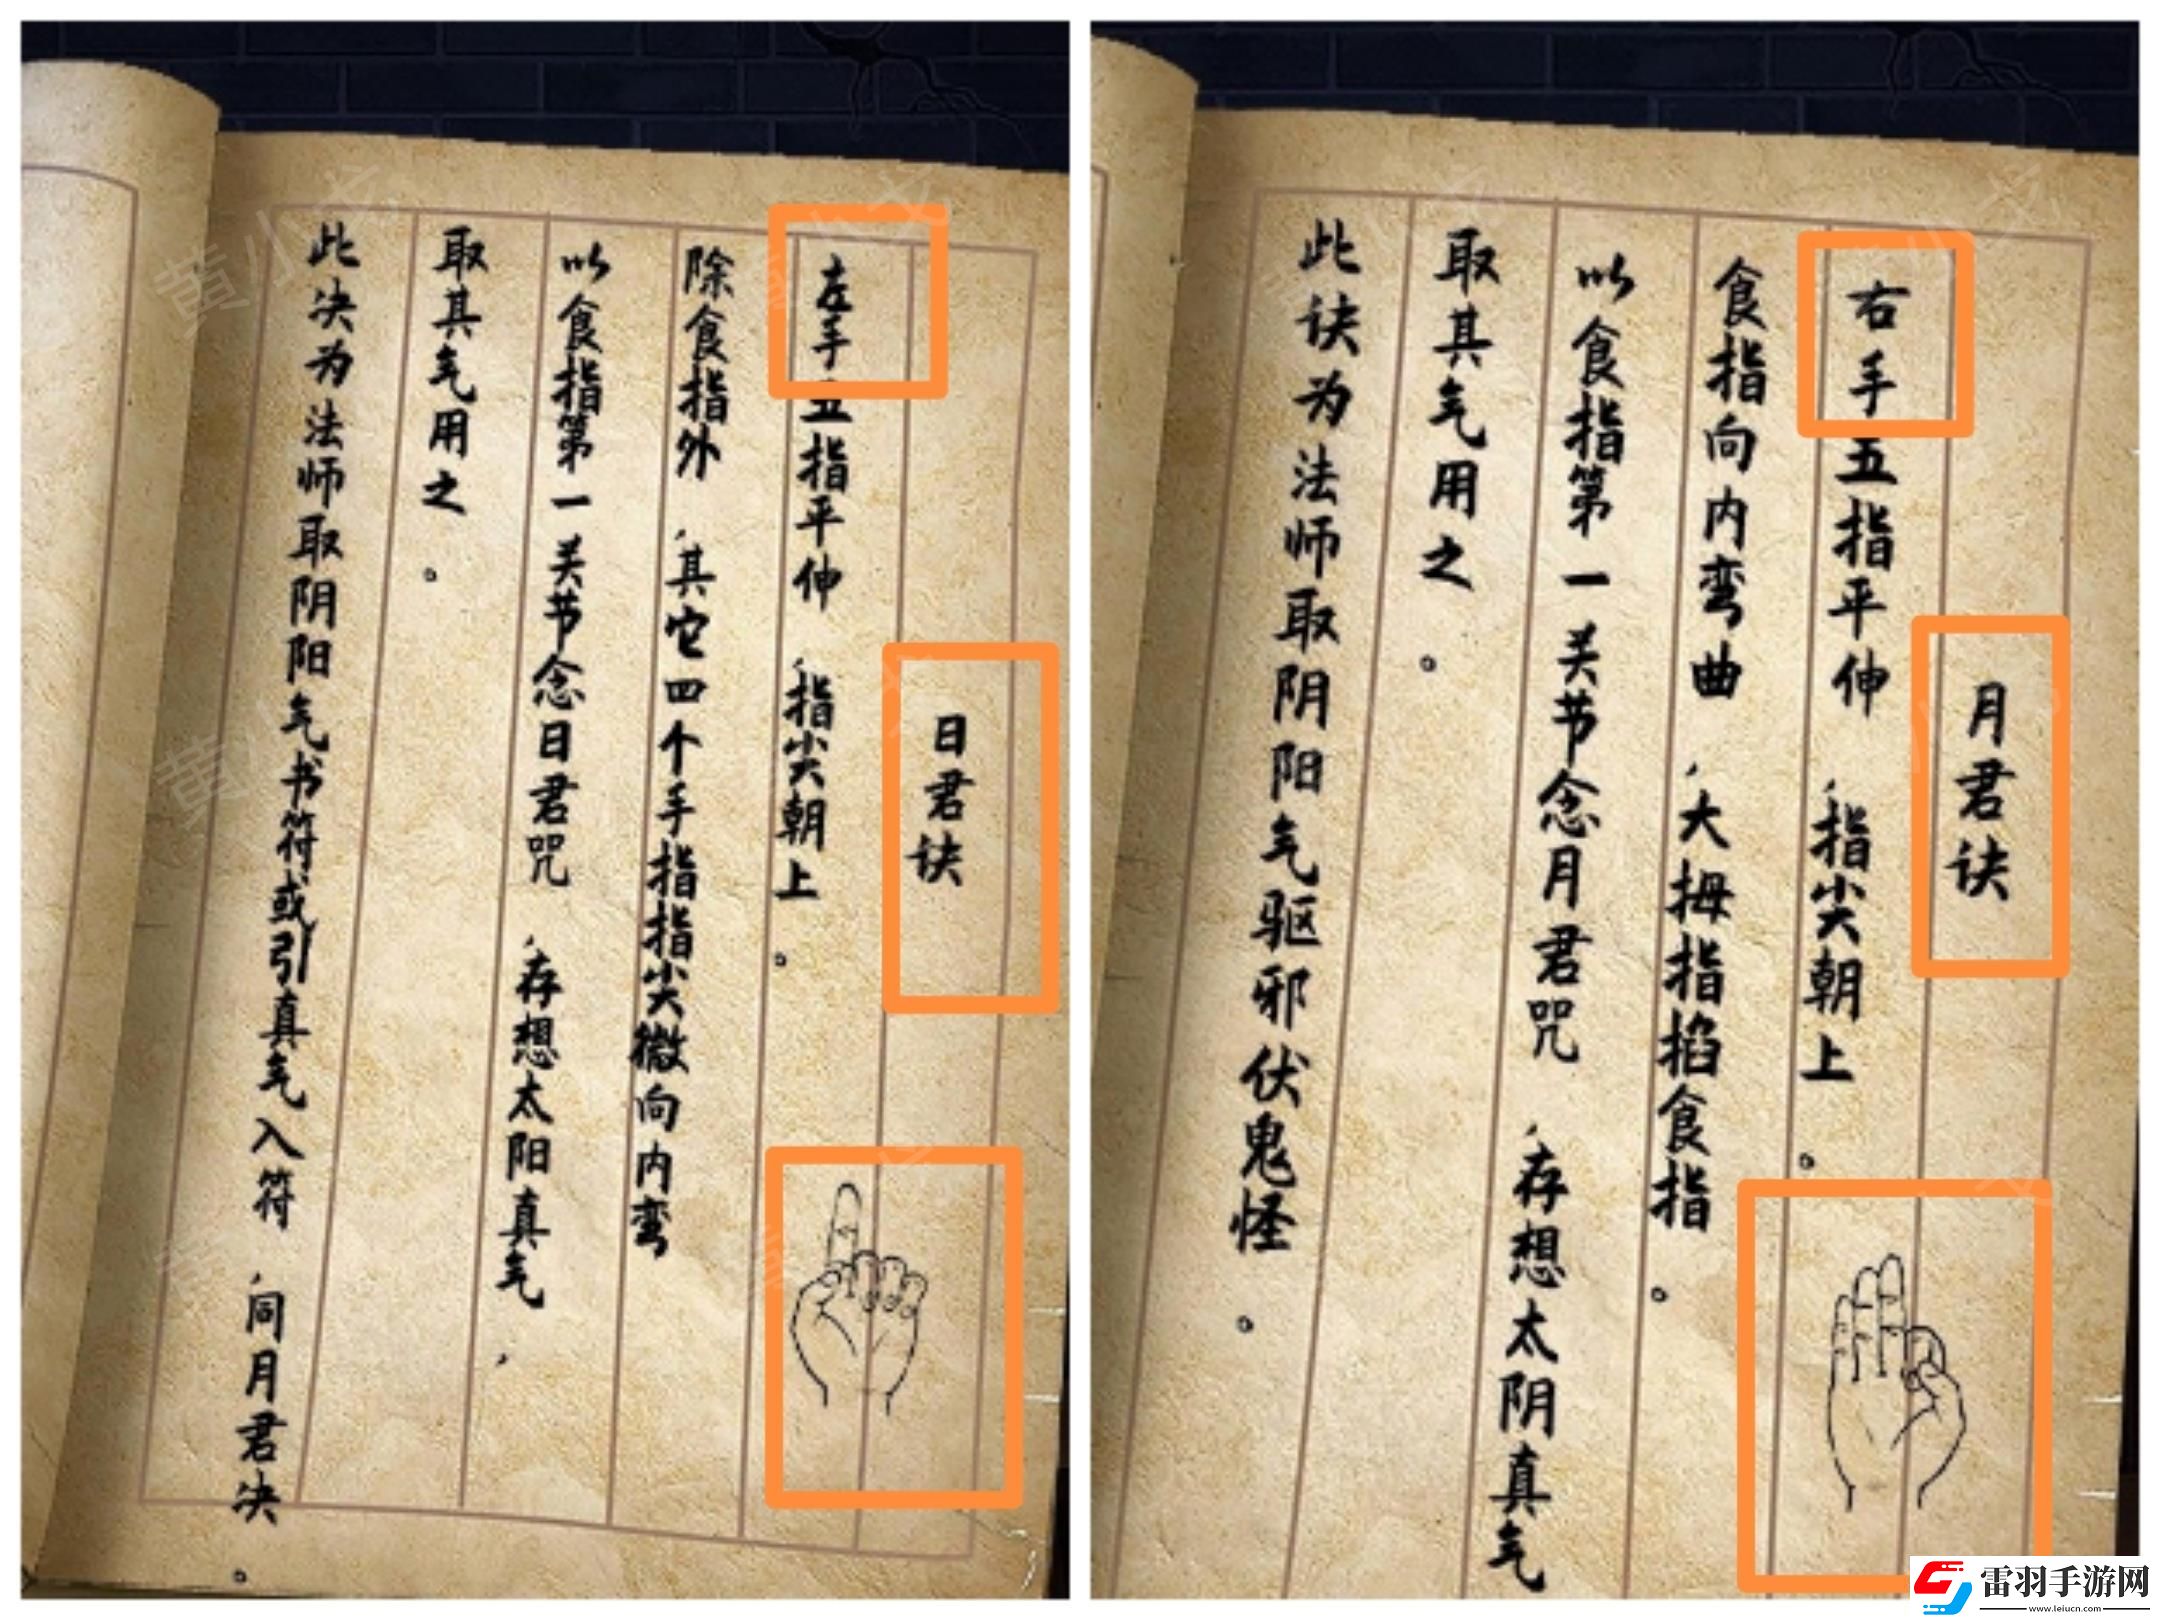 日君诀
左手五指平伸，指尖朝上。
除食指外，其它四个手指指尖微向内弯
以食指第一关节念日君咒，存想太阳真气，
取其气用之。
此决为法师取阴阳气书符或引真气入符，同月君决。
月君诀
右手五指平伸，指尖朝上。
食指向内弯曲，大拇指掐食指。
以食指第一关节念月君咒，存想太阴真气
取其气用之。
此诀为法师取阴阳气驱邪伏鬼怪。
黄小戈
雷羽手游网
www.leiucn.com